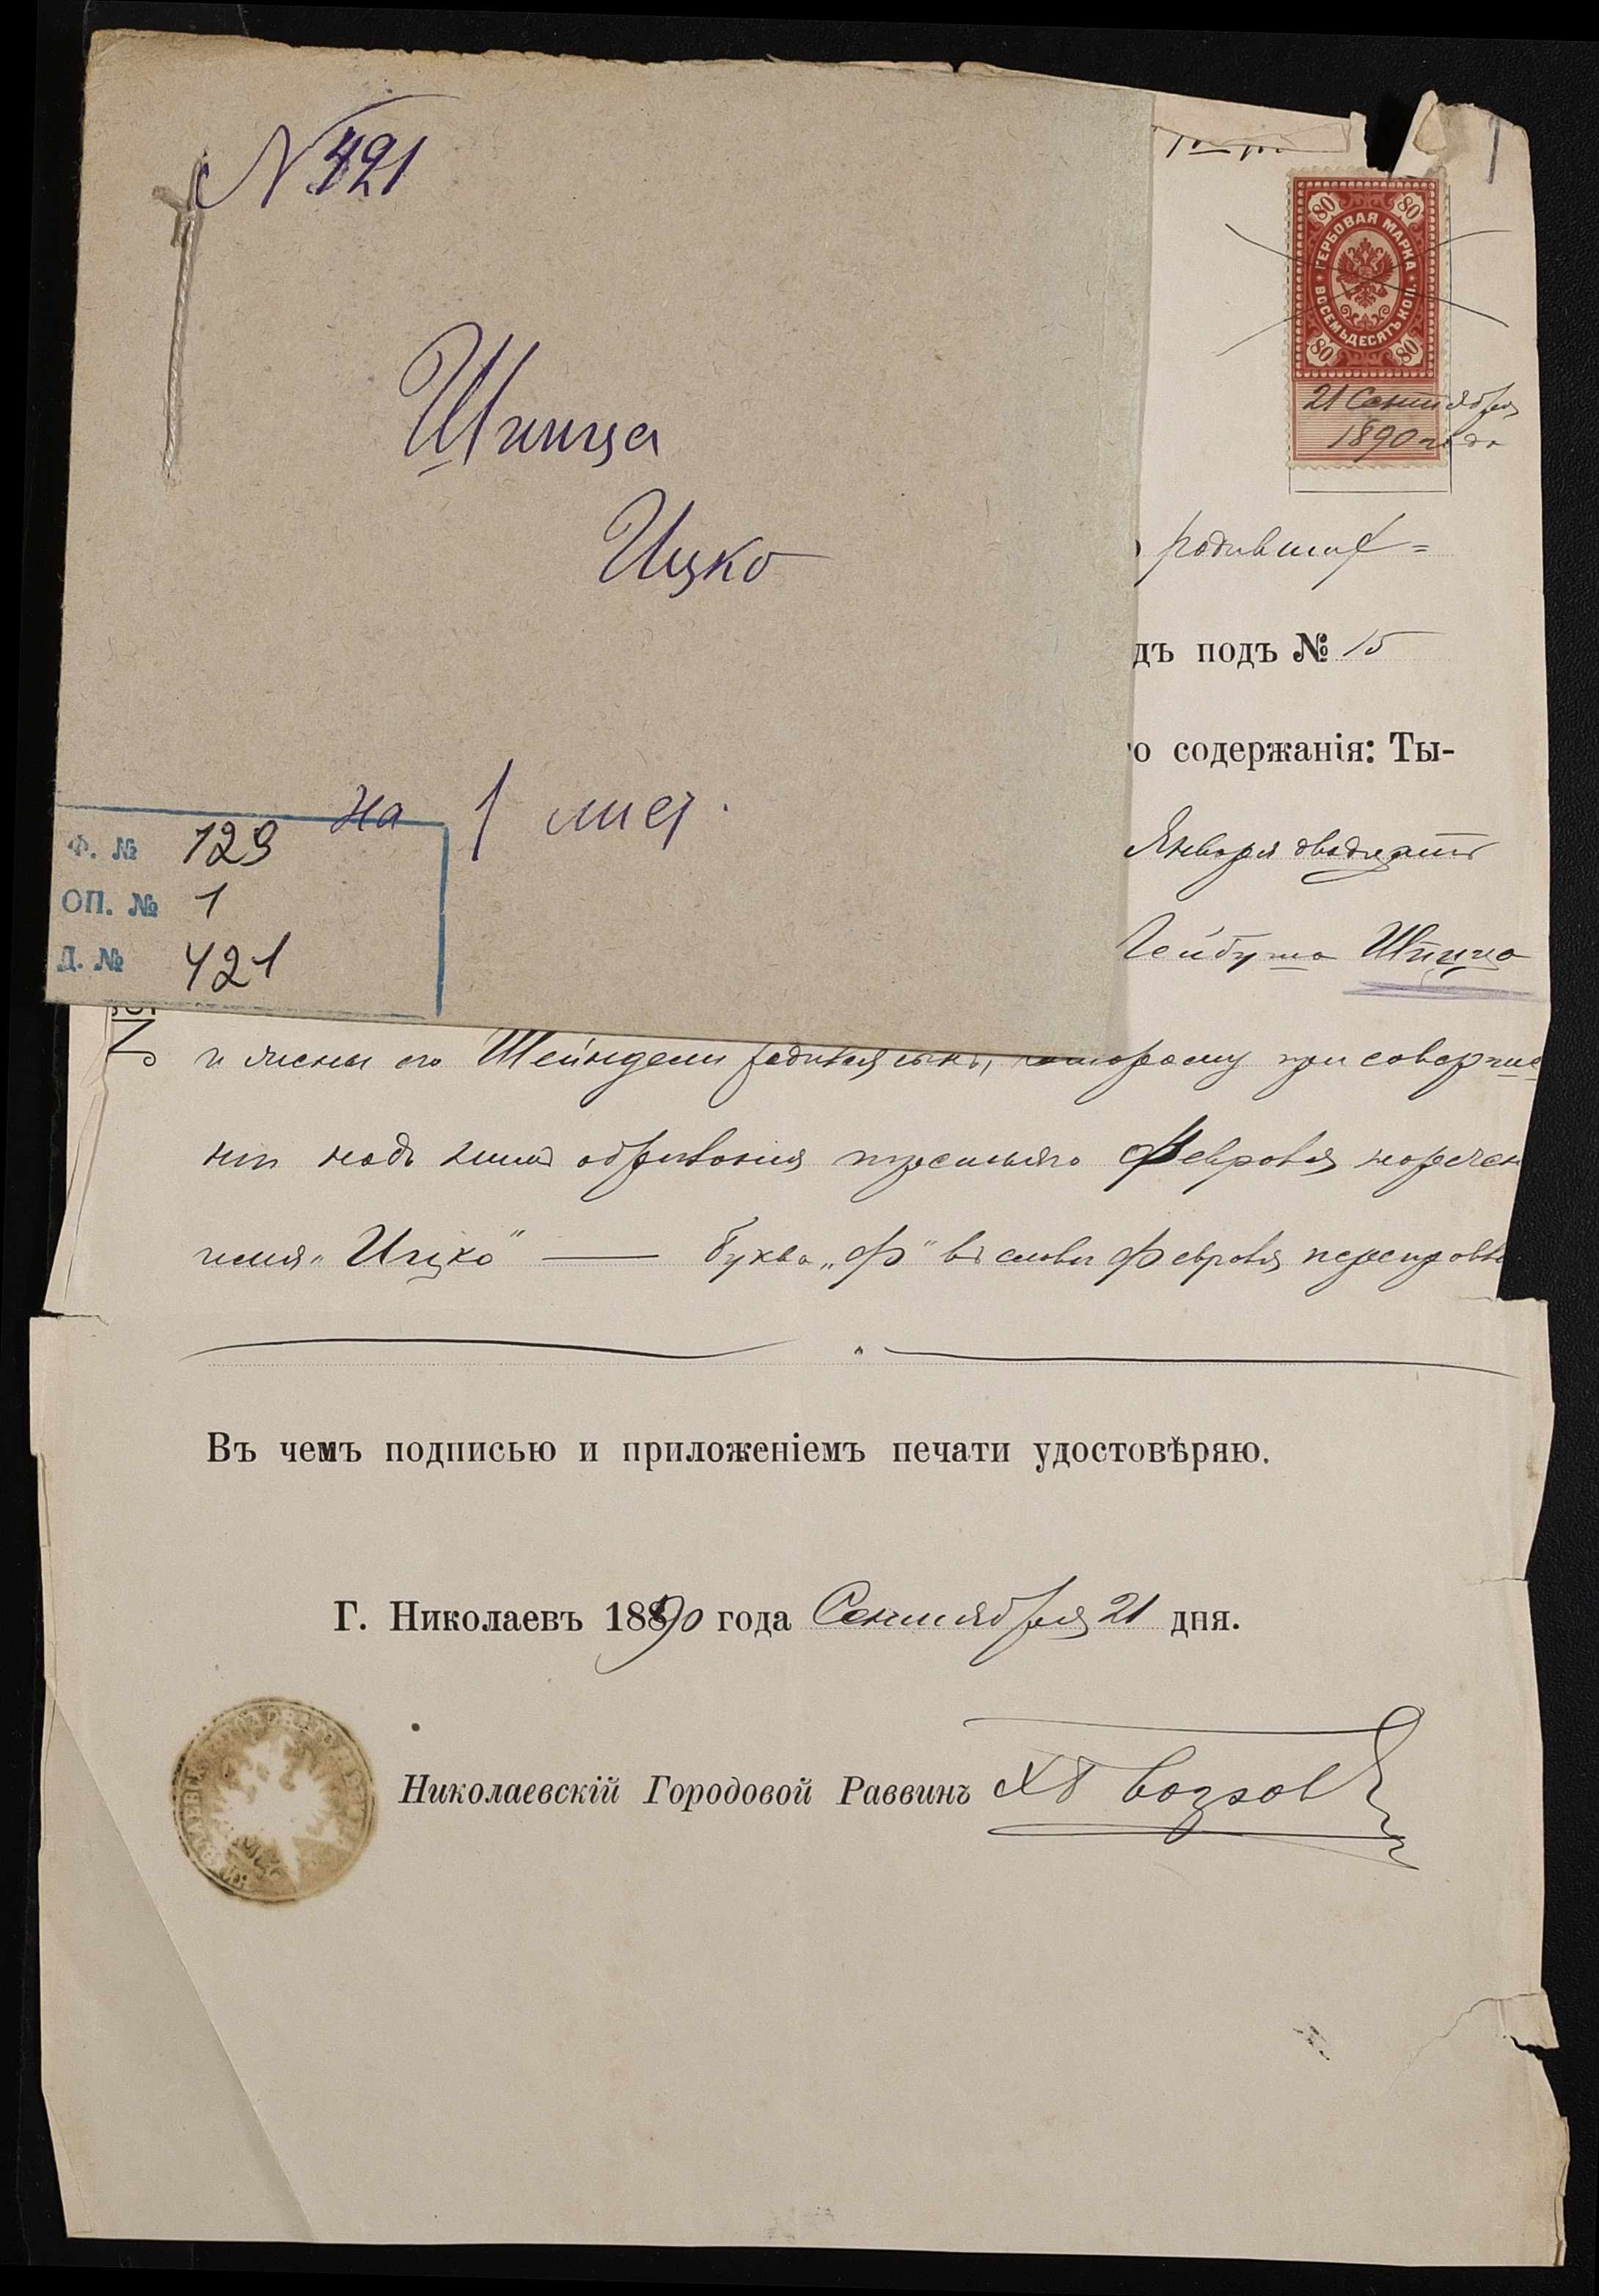 N 421
Шпица
Ицко
на 1 лист.
Ф. № 129
ОП. № 1
Д. № 421
1
80 80
ГЕРБОВАЯ МАРКА
ВОСЕМЬДЕСЯТЪ КОП.
80 80
21 Сентября
1890 года
родившаг=
дъ подъ № 15
о содержанія: Ты-
Января двадцать
Лейбуша Шпица
и жены его Шейндели родился сынъ, которому при соверше
ніи надъ нимъ обрѣзанія третьяго Февраля наречен
имя „Ицко" — буква „Ф" въ словѣ Февраля переправле
Въ чемъ подписью и приложеніемъ печати удостовѣряю.
Г. Николаевъ 1890 года Сентября 21 дня.
Николаевскій Городовой Раввинъ